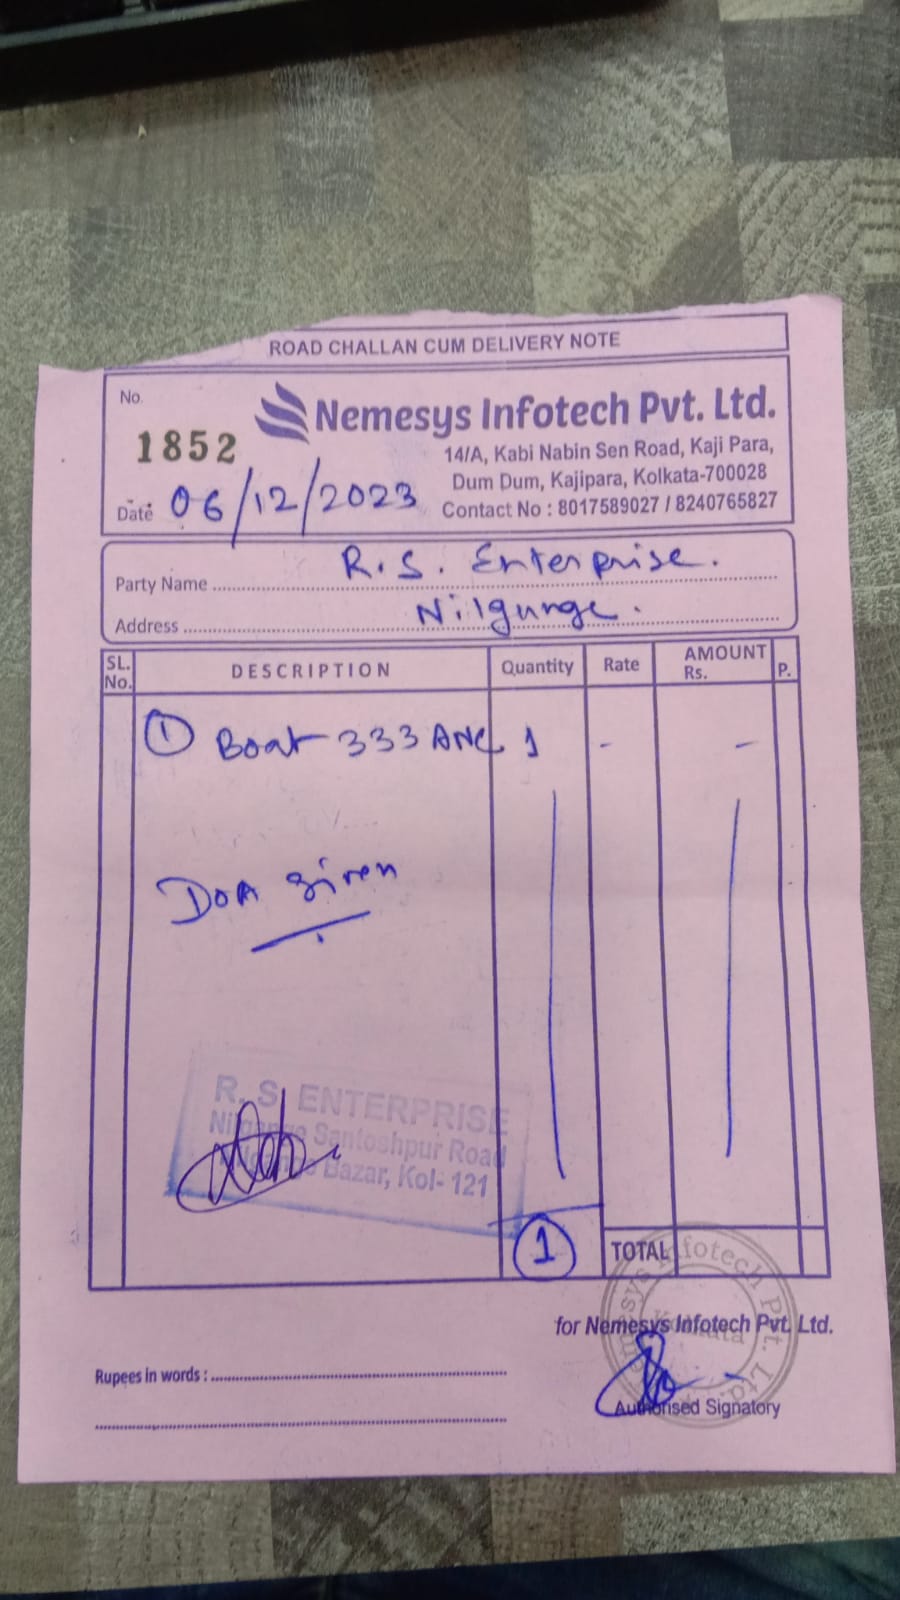 ROAD CHALLAN CUM DELIVERY NOTE
No.
1852
Nemesys Infotech Pvt. Ltd.
14/A, Kabi Nabin Sen Road, Kaji Para,
Dum Dum, Kajipara, Kolkata-700028
Contact No : 8017589027 / 8240765827
Date 06/12/2023
Party Name R.S. Enterprise.
Address Nilgunge.
SL. No. DESCRIPTION Quantity Rate AMOUNT Rs. P.
① Boat 333 ANC 1 - -
DOA given
R. S. ENTERPRISE
Santoshpur Road
Bazar, Kol- 121
1 TOTAL
Nemesys Infotech Pvt. Ltd.
Kolkata
for Nemesys Infotech Pvt. Ltd.
Rupees in words :
Authorised Signatory